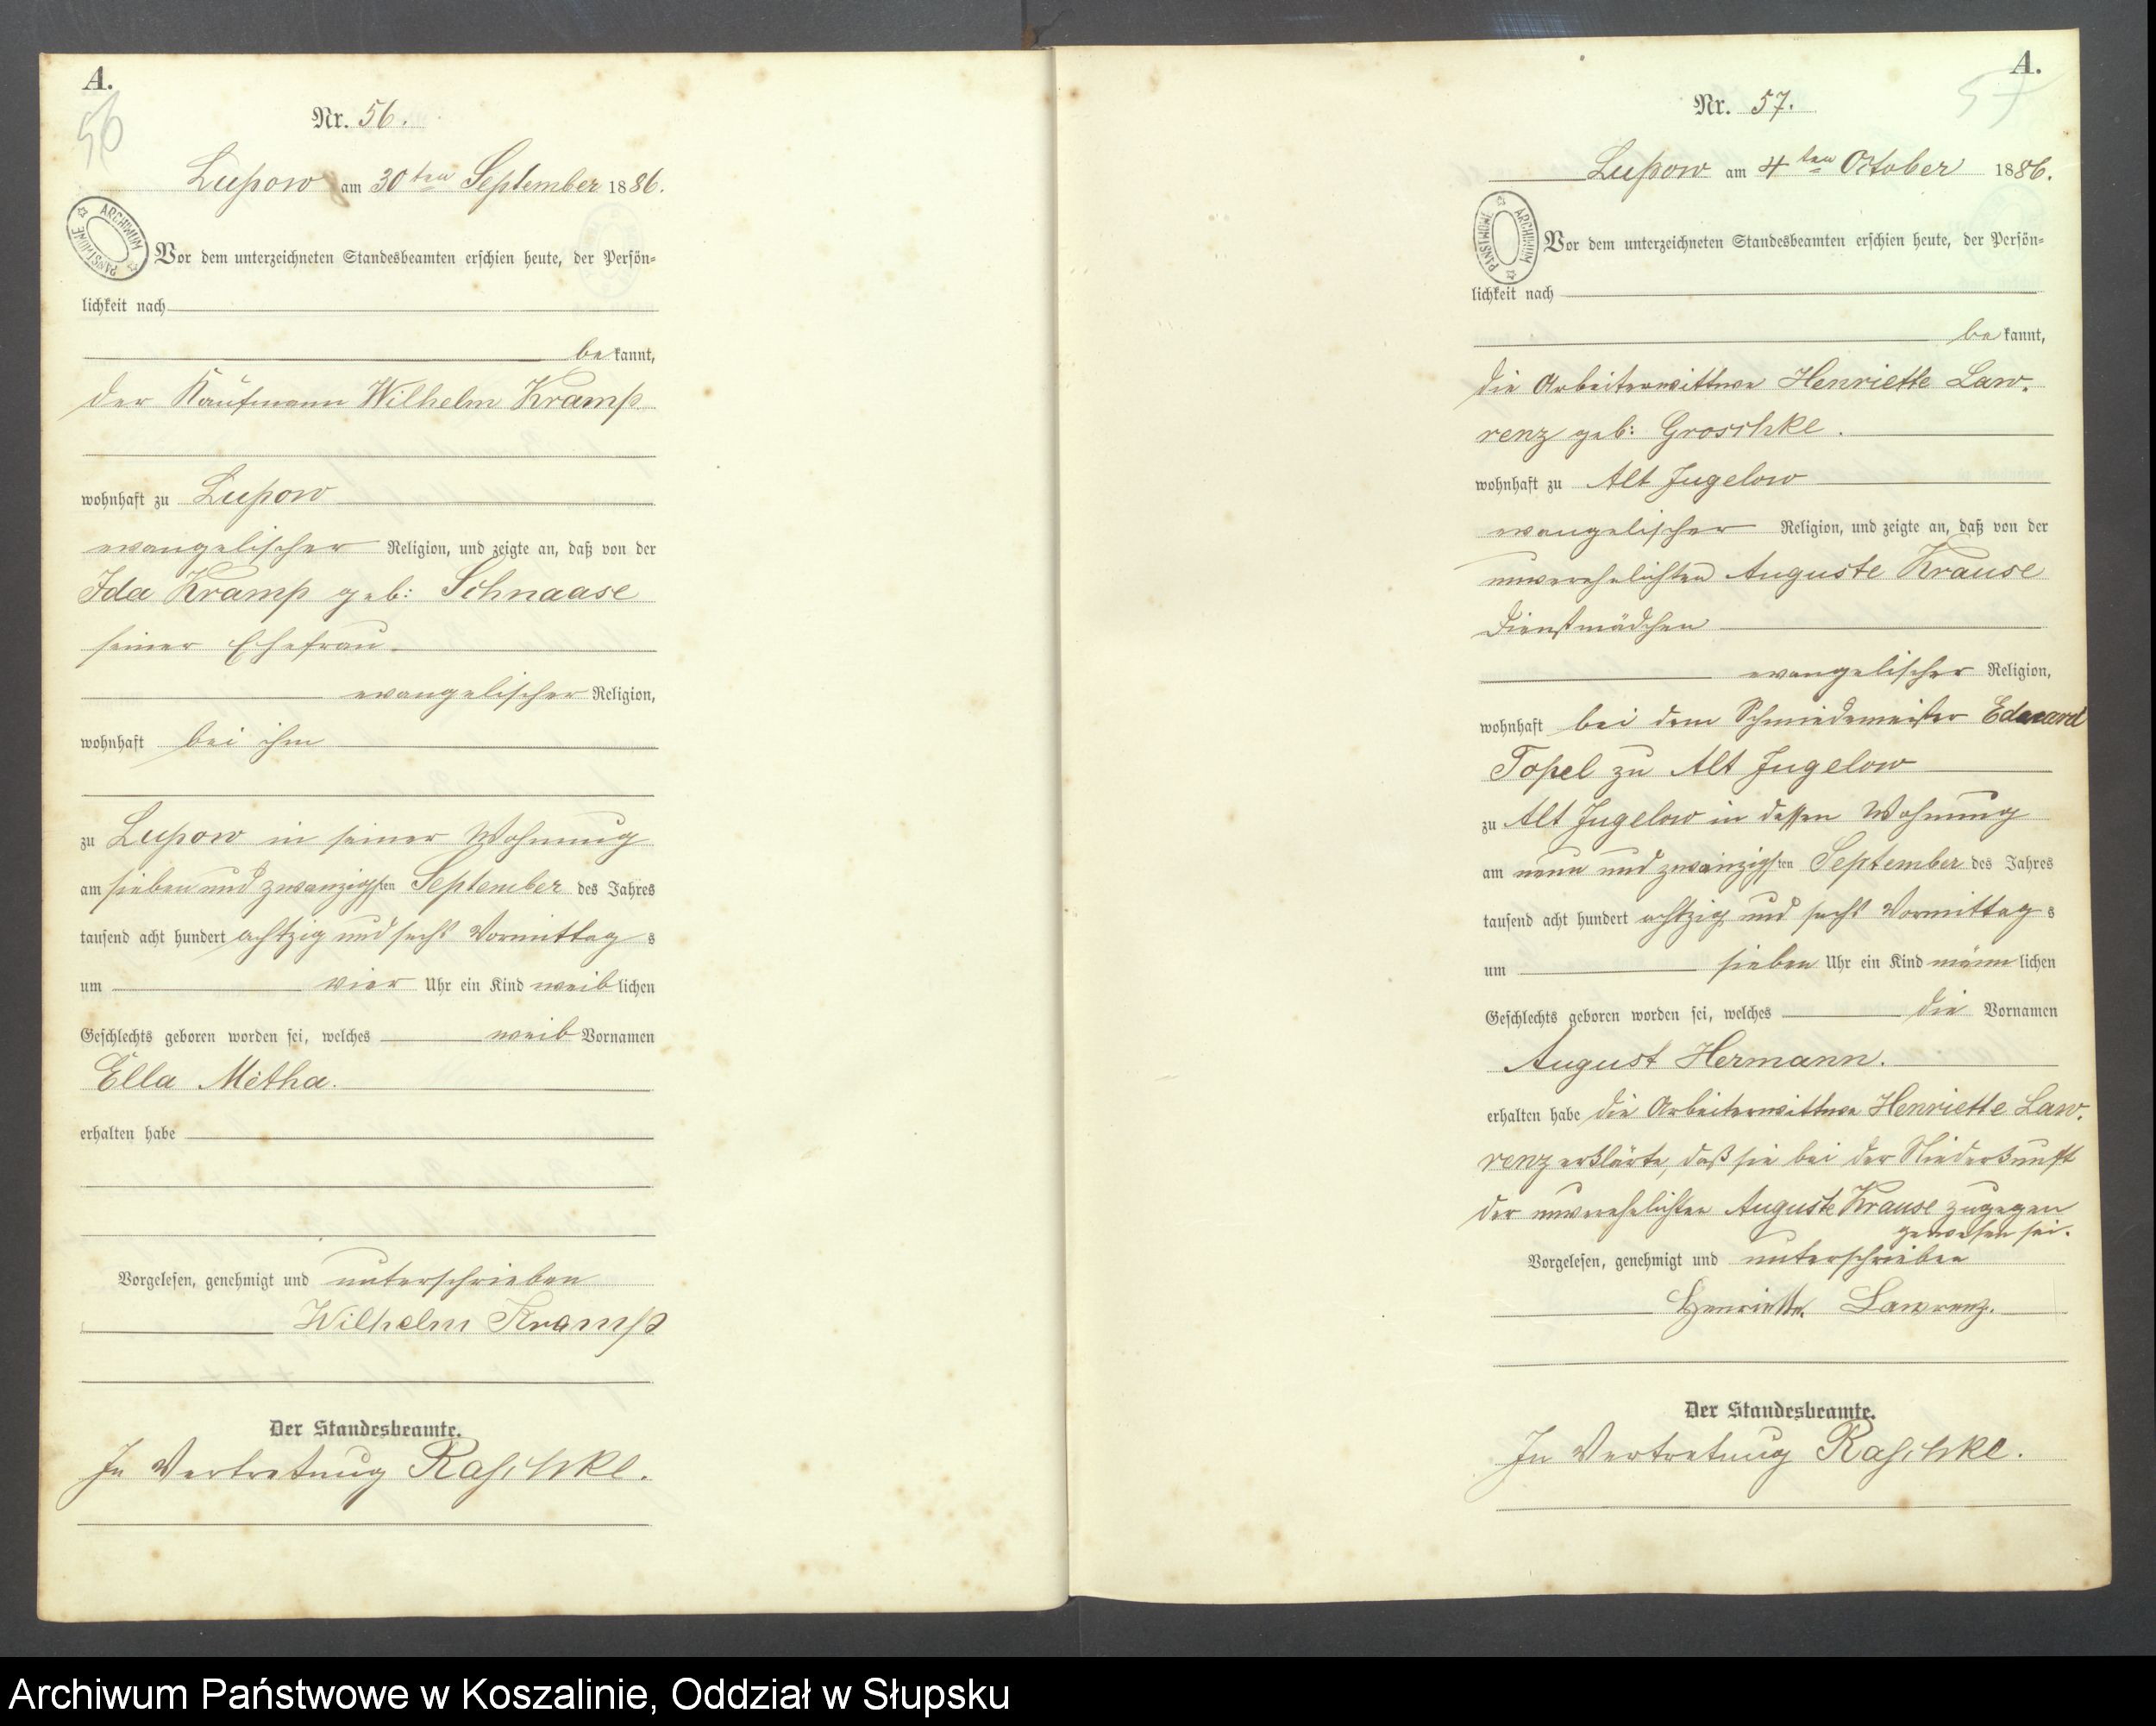 A.
56
Nr. 56.
Lupow am 30ten September 1886.
ARCHIWUM PAŃSTWOWE
Vor dem unterzeichneten Standesbeamten erschien heute, der Persön-
lichkeit nach
bekannt,
der Kaufmann Wilhelm Kramp
wohnhaft zu Lupow
evangelischer Religion, und zeigte an, daß von der
Ida Kramp geb: Schnaase
seiner Ehefrau.
evangelischer Religion,
wohnhaft bei ihm
zu Lupow in seiner Wohnung
am sieben und zwanzigsten September des Jahres
tausend acht hundert achtzig und sechs Vormittags
um vier Uhr ein Kind weiblichen
Geschlechts geboren worden sei, welches weib Vornamen
Ella Metha.
erhalten habe
Vorgelesen, genehmigt und unterschrieben
Wilhelm Kramp
Der Standesbeamte.
In Vertretung Raschke.
A.
57
Nr. 57.
Lupow am 4ten October 1886.
ARCHIWUM PAŃSTWOWE
Vor dem unterzeichneten Standesbeamten erschien heute, der Persön-
lichkeit nach
bekannt,
die Arbeiterwittwe Henriette Law-
renz geb: Groschke.
wohnhaft zu Alt Jugelow
evangelischer Religion, und zeigte an, daß von der
unverehelichten Auguste Krause
Dienstmädchen
evangelischer Religion,
wohnhaft bei dem Schmiedemeister Eduard
Topel zu Alt Jugelow
zu Alt Jugelow in dessen Wohnung
am neun und zwanzigsten September des Jahres
tausend acht hundert achtzig und sechs Vormittags
um sieben Uhr ein Kind männlichen
Geschlechts geboren worden sei, welches die Vornamen
August Hermann.
erhalten habe die Arbeiterwittwe Henriette Law-
renz erklärte, daß sie bei der Niederkunft
der unverehelichten Auguste Krause zugegen
gewesen sei.
Vorgelesen, genehmigt und unterschrieben
Henriette Lawrenz.
Der Standesbeamte.
In Vertretung Raschke.
Archiwum Państwowe w Koszalinie, Oddział w Słupsku